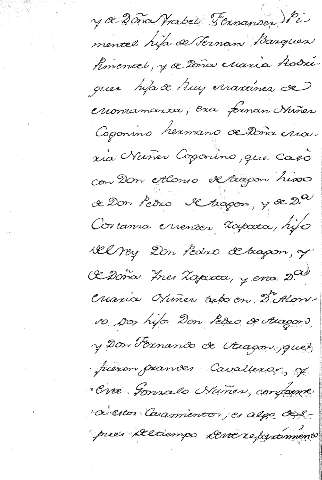 y de Doña Ysabel Fernandez Pi-
mentel hija de Fernan Vazquez
Pimentel, y de Doña Maria Rodri-
guez hija de Ruy Martinez de
era fernan Nuñez
Cogonino hermano de Doña Ma-
ria Nuñez Cogonino, que Casó
con Don Alonso de Aragon hixo
de Don Pedro de Aragon, y de Dª
Costanza Mendez Zapata, hijo
del rey Don Pedro de Aragon, y
de Doña Ines Zapata, y esta Dª
Maria Nuñez tubo en Dn Alon-
so dos hijos Don Pedro de Aragon
y Don Fernando de Aragon, que
fueron grandes Cavalleros, y
este Gonzalo Nuñez, conforme
a estos Casamientos, es algo des-
pues del tiempo